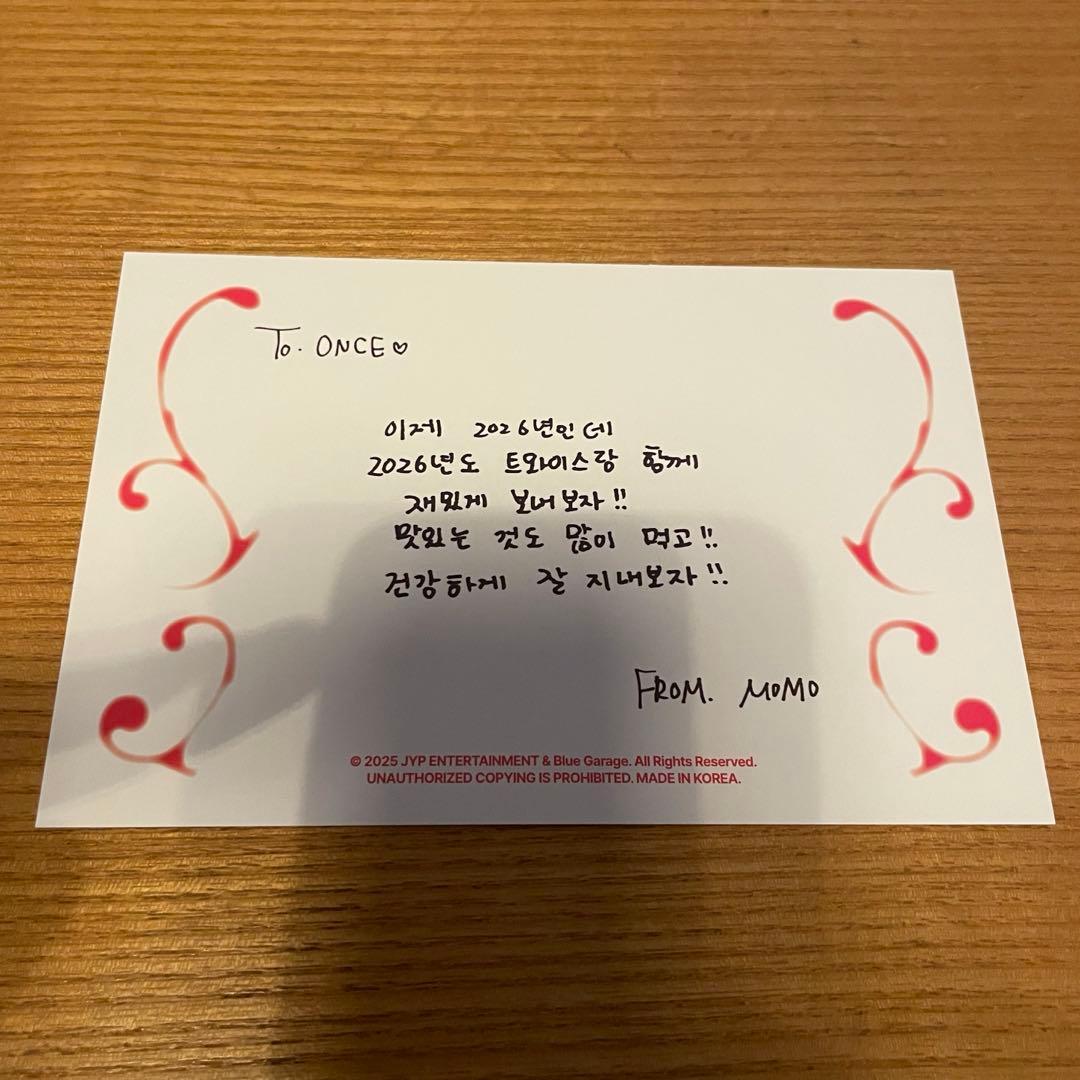 To. ONCE♡
이제 2026년인데
2026년도 트와이스랑 함께
재밌게 보내보자!!
맛있는 것도 많이 먹고!!
건강하게 잘 지내보자!!
FROM. MOMO
© 2025 JYP ENTERTAINMENT & Blue Garage. All Rights Reserved.
UNAUTHORIZED COPYING IS PROHIBITED. MADE IN KOREA.